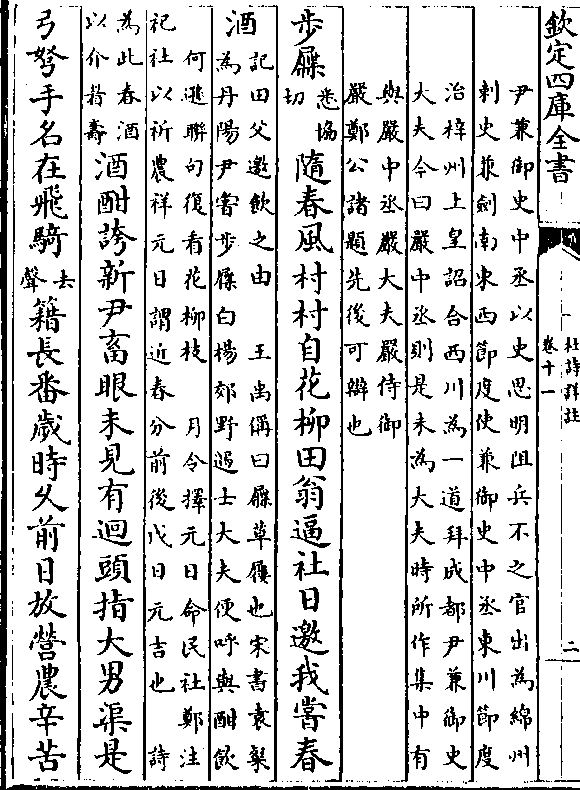 欽定四庫全書
杜詩詳註
卷十一
二
尹兼御史中丞以史思明阻兵不之官出為綿州
刺史兼劍南東西節度使兼御史中丞東川節度
治梓州上皇詔合西川為一道拜成都尹兼御史
大夫今曰嚴中丞則是未為大夫時所作集中有
與嚴中丞嚴大夫嚴侍御
嚴鄭公諸題先後可辯也
步屧悉協切隨春風村村自花柳田翁逼社日邀我嘗春
酒
記田父邀飲之由 王禹偁曰屧草屨也宋書袁粲
為丹陽尹嘗步屧白楊郊野遇士大夫便呼與酣飲
何遜聯句復看花柳枝 月令擇元日命民社鄭注
祀社以祈農祥元日謂近春分前後戊日元吉也 詩
為此春酒以介眉壽酒酣誇新尹畜眼未見有迴頭指大男渠是
弓弩手名在飛騎去聲籍長番歲時久前日放營農辛苦